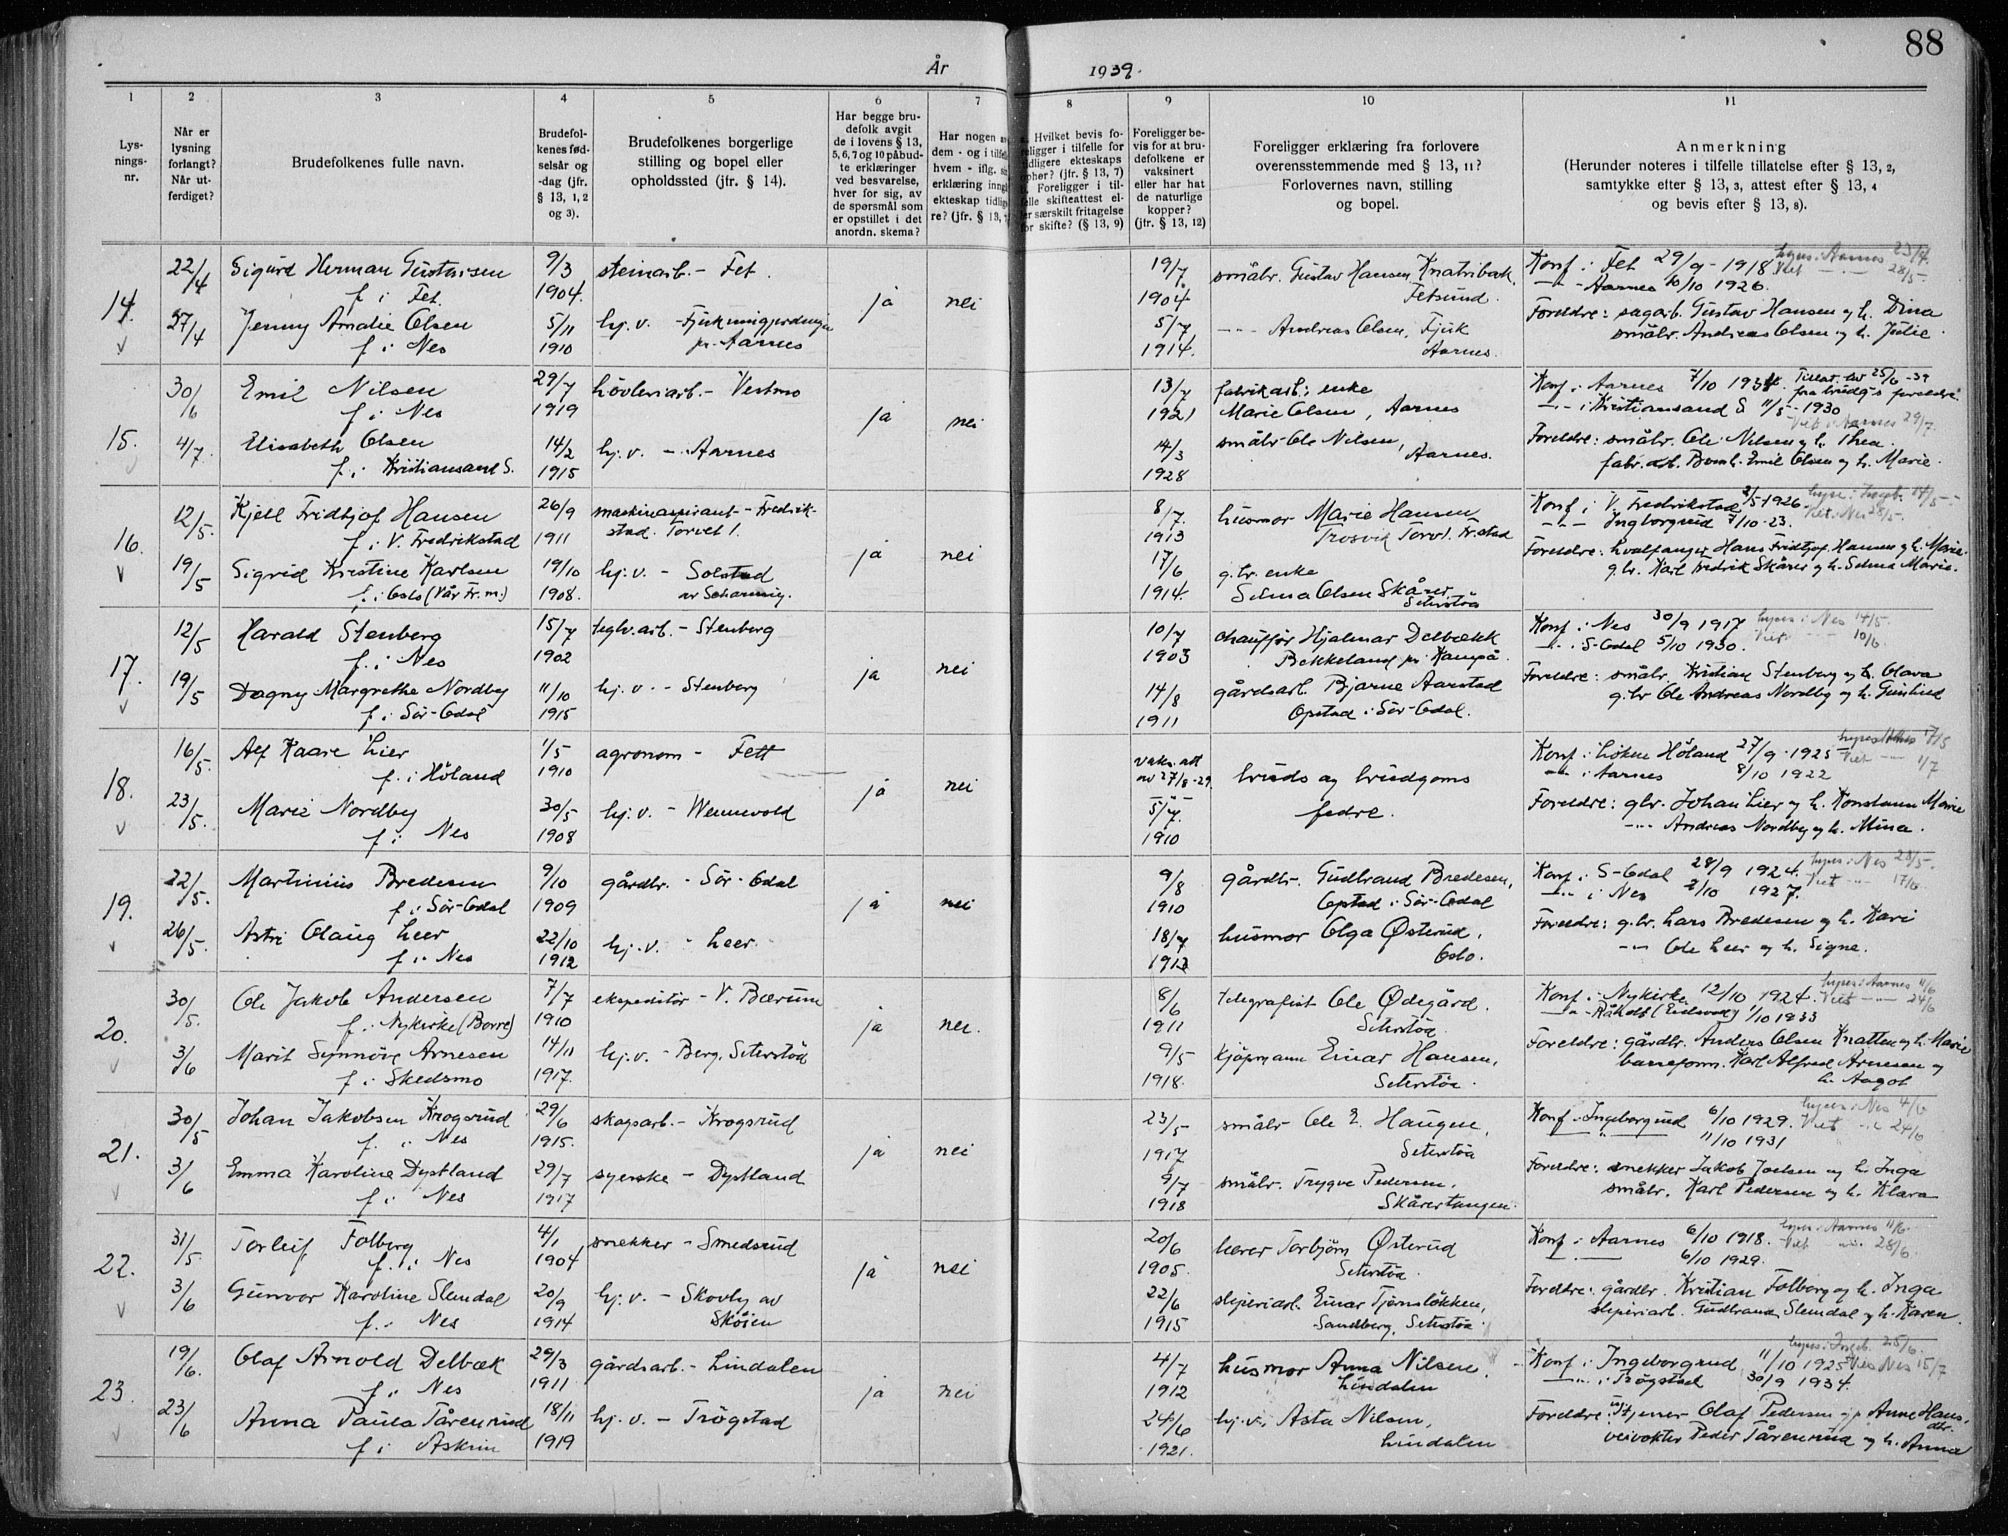 88
År 1939.
1 2 3 4 5 6 7 8 9 10 11
Lys-
nings-
nr.
Når er
lysning
forlangt?
Når ut-
ferdiget?
Brudefolkenes fulle navn.
Brudefol-
kenes fød-
selsår og
-dag (jfr.
§ 13, 1, 2
og 3).
Brudefolkenes borgerlige
stilling og bopel eller
opholdssted (jfr. § 14).
Har begge bru-
defolk avgit
de i lovens § 13,
5, 6, 7 og 10 påbud-
te erklæringer
ved besvarelse,
hver for sig, av
de spørsmål som
er opstillet i det
anordn. skema?
Har nogen av
dem - og i tilfelle
hvem - iflg. sin
erklæring inngått
ekteskap tidlige-
re? (jfr. § 13, 7
Hvilket bevis fo-
religger i tilfelle for
tidligere ekteskaps
opher? (jfr. § 13, 7)
Foreligger i til-
felle skifteattest el-
ler særskilt fritagelse
for skifte? (§ 13, 9)
Foreligger be-
vis for at bru-
defolkene er
vaksinert
eller har hat
de naturlige
kopper?
(jfr. § 13, 12)
Foreligger erklæring fra forlovere
overensstemmende med § 13, 11?
Forlovernes navn, stilling
og bopel.
Anmerkning
(Herunder noteres i tilfelle tillatelse efter § 13, 2,
samtykke efter § 13, 3, attest efter § 13, 4
og bevis efter § 13, 8).
14. 22/4 Sigurd Herman Gustavsen 9/3 steinarb. - Fet. ja nei 19/7 småbr. Gustav Hansen Konf. i Fet 29/9 - 1918 lyses i Aarnes 23/4.
f. i Fet. 1904. 1904 Fetsund. -"- - Aarnes 10/10 1926. Viet -"- 28/5-
27/4 Jenny Amalie Olsen 5/11 hj. v. - 5/7 -"- Andreas Olsen, Fjuk Foreldre: sagarb. Gustav Hansen og h. Dina
f. i Nes 1910 pr. Aarnes 1914. Aarnes. småbr. Andreas Olsen og h. Julie.
15. 30/6 Emil Nilsen 29/7 høvleriarb. - Vestmo ja nei 13/7 fabrikarb. enke Konf. i Aarnes 7/10 1934 Tillat. av 25/6 -39
f. i Nes 1919 1921 Marie Olsen, Aarnes -"- i Kristiansand S. 11/5 - 1930 fra brudg's foreldre
4/7. Elisabeth Olsen 14/2 hj. v. - Aarnes 14/3 småbr. Ole Nilsen, Viet i Aarnes 29/7.
f. i Kristiansand S. 1915 1928 Aarnes. Foreldre: småbr. Ole Nilsen og h. Thea.
fabr. arb. Bernh. Emil Olsen og h. Marie.
16. 12/5. Kjell Fridtjof Hansen 26/9 maskinaspirant - Fredrik- ja nei 8/7. husmor Marie Hansen Konf. i V. Fredrikstad 2/5 1926. lyses i Ingeb. 14/5 -
f. i V. Fredrikstad 1911 stad. Torvet 1. 1913 Trosvik Torv 1. Fr.stad -"- Ingeborgrud 7/10 - 23. Viet i Nes 28/5.
19/5 Sigrid Kristine Karlsen 19/10 hj. v. - Solstad 17/6 g.br. enke Foreldre: hvalfanger Hans Fridtjof Hansen og h. Marie.
f. i Oslo (Vår Fr. m.) 1908. av Scharning. 1914. Selma Olsen Skårer, Seterstøa g.br. Karl Fredrik Skårer og h. Selma Marie.
17. 12/5 Harald Stenberg 15/7 teglv.arb. - Stenberg ja nei 10/7 chauffør Hjalmar Delbækk Konf. i Nes 30/9 1917 lyses i Nes 14/5.
f. i Nes 1902 1903 Bekkeland pr. Kampå. -"- i S-Odal 5/10 1930. Viet -"- 10/6.
19/5 Dagny Margrethe Nordby 11/10 hj. v. - Stenberg 14/8 gårdsarb. Bjarne Aarstad Foreldre: småbr. Kristian Stenberg og h. Olava
f. i Sør-Odal 1915 1911 Opstad i Sør-Odal. g.br. Ole Andreas Nordby og h. Gunhild
18. 16/5. Alf Kaare Lier 1/5 agronom - Fett ja nei vaks. att. bruds og brudgoms Konf. i Løken Høland 27/9 - 1925 lyses i Nes 17/5
f. i Høland 1910 av 27/8 -29. fedre. -"- i Aarnes 8/10 1922 Viet -"- 1/7
23/5. Marie Nordby 30/5 hj. v. - Wennevold 5/7. Foreldre: gbr. Johan Lier og h. Konstanse Marie
f. i Nes 1908 1910 -"- Andreas Nordby og h. Mina.
19. 22/5. Martinius Bredesen 9/10 gårdbr. - Sør-Odal ja nei 9/8 gårdbr. Gudbrand Bredesen, Konf. i S-Odal 28/9 1924. lyses i Nes 28/5.
f. i Sør-Odal 1909 1910 Opstad i Sør-Odal -"- i Nes 2/10 1927. Viet -"- 17/6.
26/5. Astri Olaug Leer 22/10 hj. v. - Leer. 18/7 husmor Olga Østerud, Foreldre: g.br. Lars Bredesen og h. Kari
f. i Nes 1912 1913 Oslo. -"- Ole Leer og h. Signe.
20. 30/5. Ole Jakob Andersen 7/7 ekspeditør - V. Bærum ja nei. 8/6 telegrafist Ole Ødegård. Konf. i Nykirke 12/10 1924. lyses i Aarnes 11/6
f. i Nykirke (Borre) 1910 1911 Seterstøa. -"- Råholt (Eidsvoll) 1/10 1933 Viet -"- 24/6
3/6 Marit Synnøve Arnesen 14/11 hj. v. - Berg, Seterstøa 9/5 kjøpmann Einar Hansen, Foreldre: gårdbr. Anders Olsen Knatten og h. Marie
f. i Skedsmo 1917. 1918. Seterstøa. baneform. Karl Alfred Arnesen og
h. Aagot
21. 30/5 Johan Jakobsen Krogsrud 29/6 skogsarb. - Krogsrud ja nei 23/5 småbr. Ole E. Haugen, Konf. i Ingeborgrud 6/10 1929. lyses i Nes 4/6
f. i Nes 1915. 1917 Seterstøa -"- 11/10 1931 Viet -"- 24/6
3/6 Emma Karoline Dystland 29/7 syerske - Dystland 9/7 småbr. Trygve Pedersen, Foreldre: snekker Jakob Joelsen og h. Inga
f. i Nes 1917 1918 Skårertangen. småbr. Karl Pedersen og h. Klara
22. 31/5. Torleif Folberg 4/1 snekker - Smedsrud ja nei 20/6 lærer Torbjørn Østerud Konf. i Aarnes 6/10 1918. lyses i Aarnes 11/6.
f. i Nes 1904 1905. Seterstøa. -"- 6/10 1929. Viet -"- 28/6.
3/6 Gunvor Karoline Slemdal 20/9 hj. v. - Skovly av 22/6 sliperiarb. Einar Tjernsløkken, Foreldre: gårdbr. Kristian Folberg og h. Inga
f. i Nes 1914 Skøien 1915 Sandberg, Seterstøa. sliperiarb. Gudbrand Slemdal og h. Karen.
23. 19/6. Olaf Arnold Delbæk 29/3 gårdsarb. - Lindalen ja nei 4/7 husmor Anna Nilsen. Konf. i Ingeborgrud 11/10 1925 lyses i Ingeb. 25/6.
f. i Nes 1911 1912 Lindalen -"- i Trøgstad 30/9 1934. Viet Nes 15/7
23/6 Anna Paula Tårenrud 18/11 hj. v. - Trøgstad 24/6 hj. v. Asta Nilsen, Foreldre: tjener Olaf Pedersen og p. Anne Hans.
f. i Askim 1919 1921. Lindalen dtr. veivokter Peder Tårenrud og h. Anna